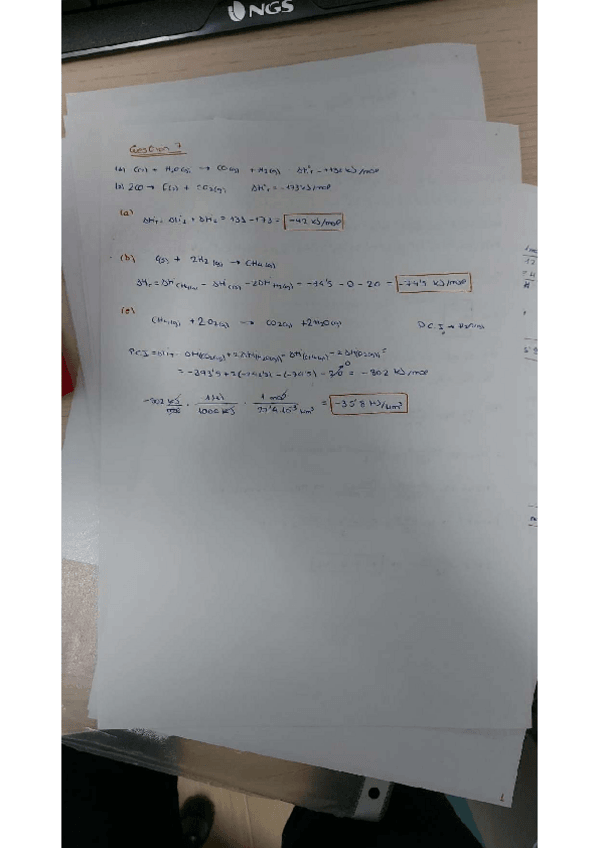 NGS
Question 7
(1) C(s) + H2O(g) → CO(g) + H2(g) ΔH°r = +131 kJ/mol
(2) 2CO → C(s) + CO2(g) ΔH°r = -173 kJ/mol
(a)
ΔHr = ΔH1 + ΔH2 = 131 - 173 = -42 kJ/mol
(b) C(s) + 2H2(g) → CH4(g)
ΔHr = ΔH CH4(g) - ΔH C(s) - 2ΔH H2(g) = -74'5 - 0 - 20 = -74'5 kJ/mol
(c)
CH4(g) + 2O2(g) → CO2(g) + 2H2O(g)
P.C.I
= -393'5 + 2(-241'5) - (-74'5) - 20 = -802 kJ/mol
-802 kJ/mol · 1MJ/1000 kJ · 1 mol/22'4·10-3 Nm3 = -35'8 MJ/Nm3
1